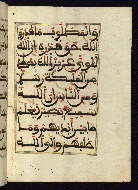 والمطلوب ما قدروا
الله حق قدره إن الله
لقوي عزيز الله يصطفي
من الملئكة رسلا
ومن الناس إن الله
سميع بصير يعلم
ما بين أيديهم وما
خلفهم وإلى الله